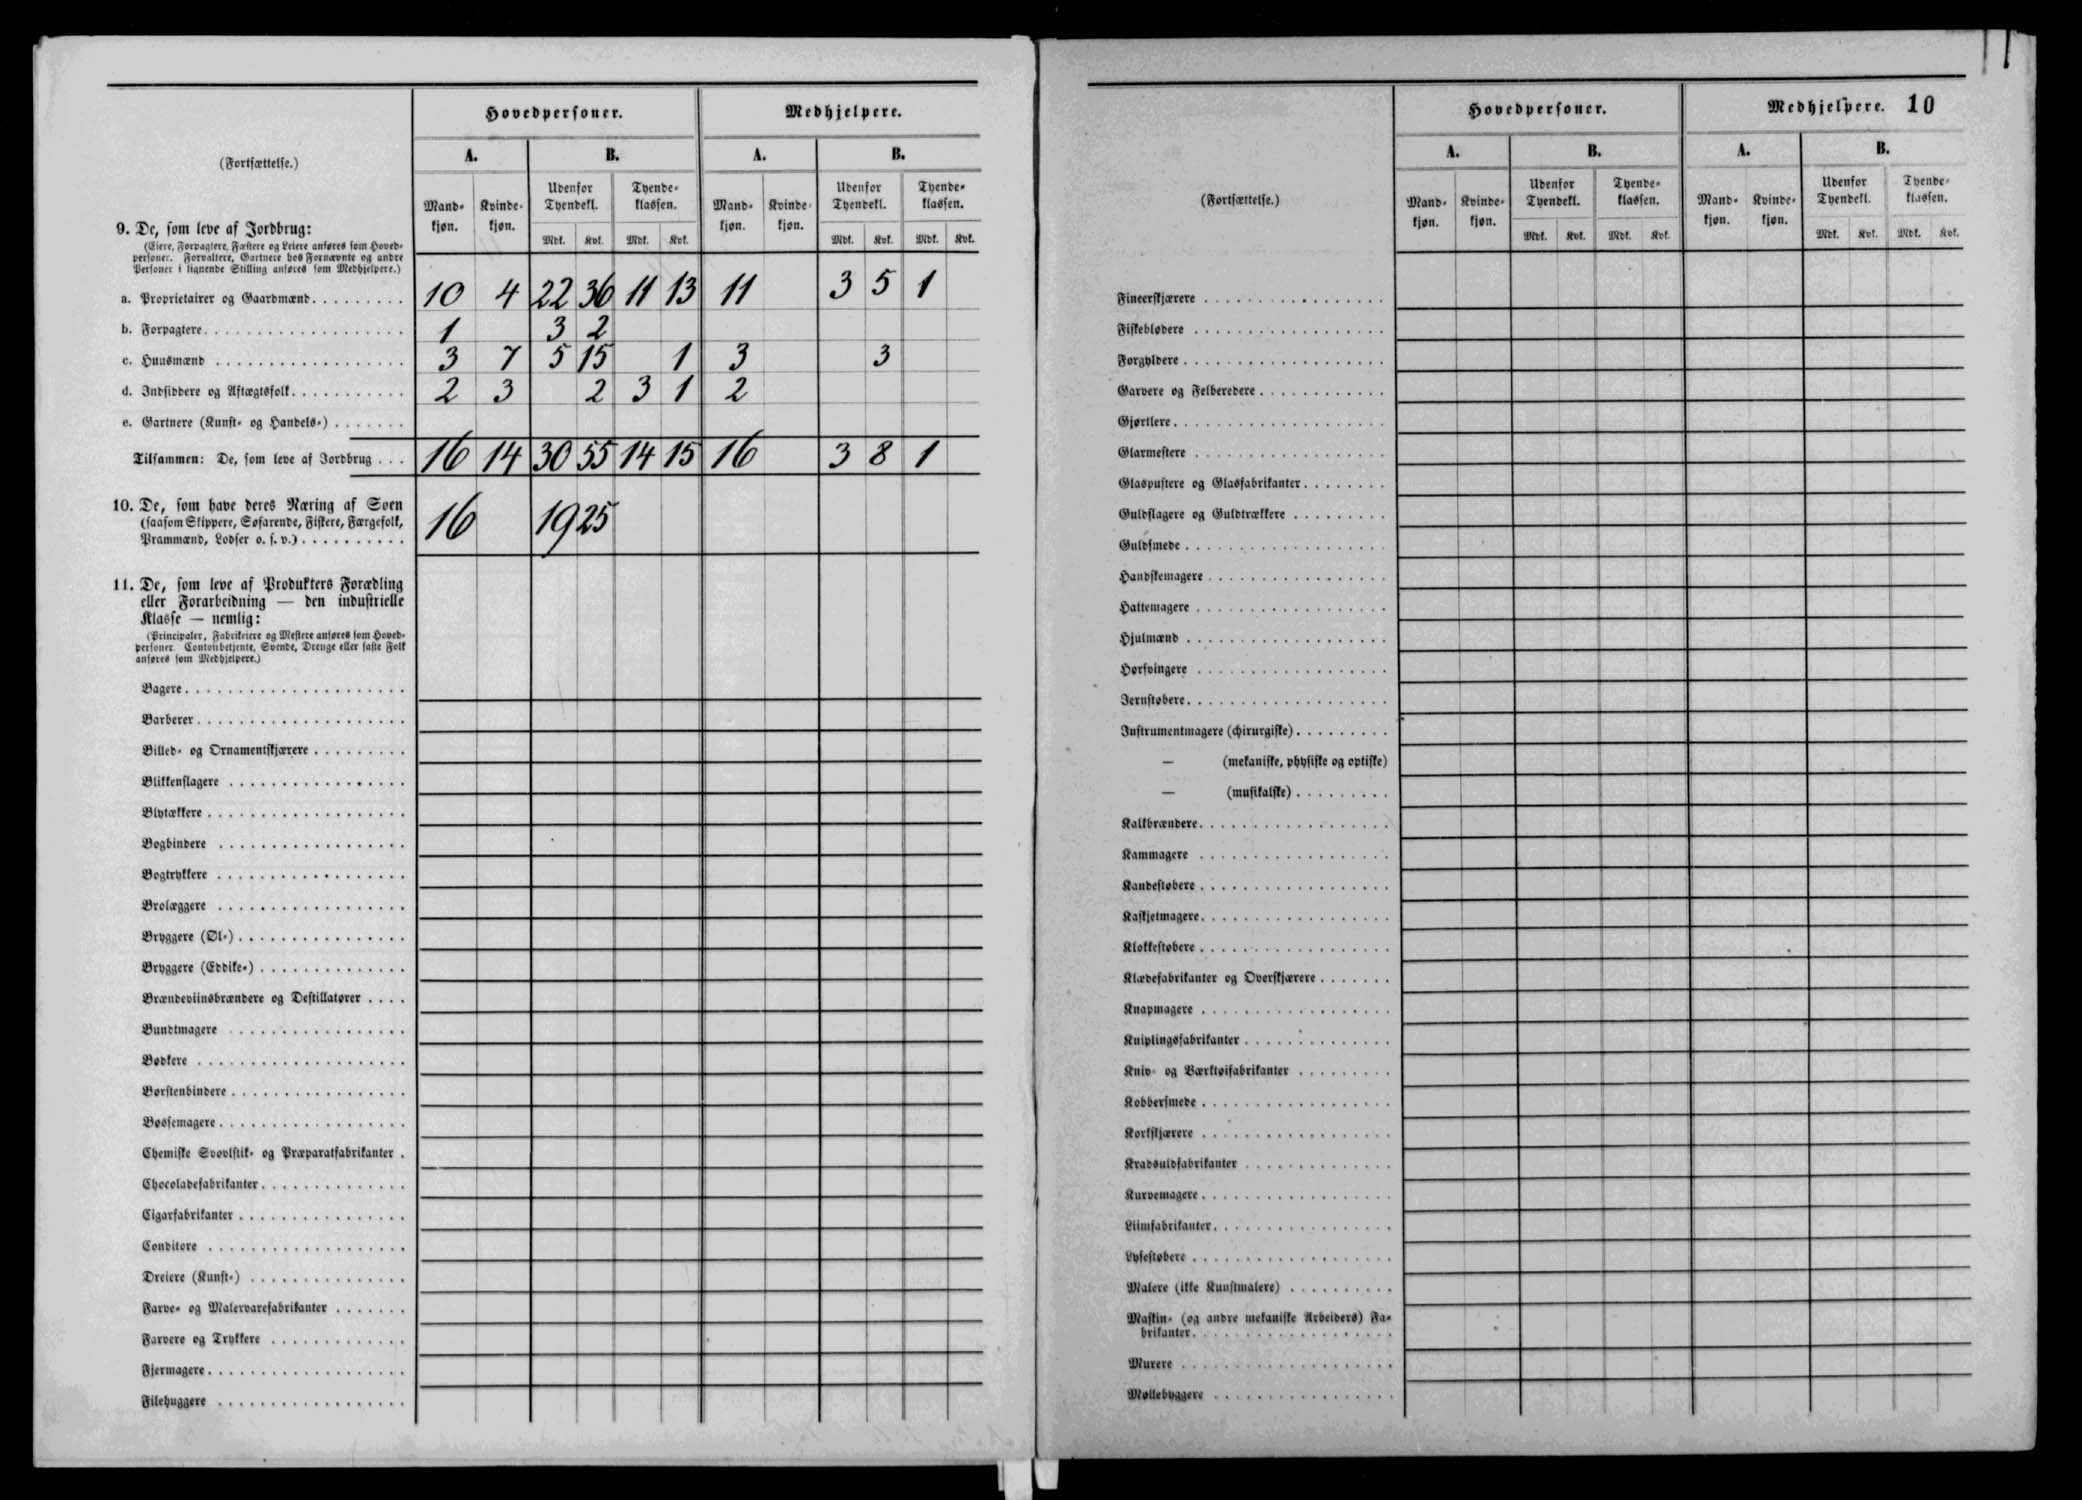 Hovedpersoner. Medhjelpere.
(Fortsættelse.)
A. B. A. B.
Udenfor Tyendekl. Tyendeklassen. Udenfor Tyendekl. Tyendeklassen.
Mandkjøn. Kvindekjøn. Mandkjøn. Kvindekjøn.
Mdk. Kvk. Mdk. Kvk. Mdk. Kvk. Mdk. Kvk.
9. De, som leve af Jordbrug:
(Eiere, Forpagtere, Fæstere og Leiere anføres som Hoved-
personer. Forvaltere, Gartnere hos Fornævnte og andre
Personer i lignende Stilling anføres som Medhjelpere.)
a. Proprietairer og Gaardmænd......... 10 4 22 36 11 13 11 3 5 1
b. Forpagtere................... 1 3 2
c. Huusmænd .................. 3 7 5 15 1 3 3
d. Indsiddere og Aftægtsfolk........... 2 3 2 3 1 2
e. Gartnere (Kunst- og Handels-) .......
Tilsammen: De, som leve af Jordbrug ... 16 14 30 55 14 15 16 3 8 1
10. De, som have deres Næring af Søen
(saasom Skippere, Søfarende, Fiskere, Færgefolk,
Prammænd, Lodser o. s. v.) .......... 16 19 25
11. De, som leve af Produkters Forædling
eller Forarbeidning — den industrielle
Klasse — nemlig:
(Principaler, Fabrikeiere og Mestere anføres som Hoved-
personer. Contoirbetjente, Svende, Drenge eller faste Folk
anføres som Medhjelpere.)
Bagere.....................
Barberer....................
Billed- og Ornamentskjærere .........
Blikkenslagere .................
Blytækkere ...................
Bogbindere ..................
Bogtrykkere ..................
Brolæggere ..................
Bryggere (Øl-) ................
Bryggere (Eddike-) ..............
Brændeviinsbrændere og Destillatører ....
Bundtmagere .................
Bødkere ....................
Børstenbindere .................
Bøssemagere ..................
Chemiske Svovlstik- og Præparatfabrikanter .
Chocoladefabrikanter ..............
Cigarfabrikanter ................
Conditore ...................
Dreiere (Kunst-) ...............
Farve- og Malervarefabrikanter .......
Farvere og Trykkere .............
Fjermagere ...................
Filehuggere ..................
Hovedpersoner. Medhjelpere. 10
(Fortsættelse.)
A. B. A. B.
Udenfor Tyendekl. Tyendeklassen. Udenfor Tyendekl. Tyendeklassen.
Mandkjøn. Kvindekjøn. Mandkjøn. Kvindekjøn.
Mdk. Kvk. Mdk. Kvk. Mdk. Kvk. Mdk. Kvk.
Fineerskjærere .................
Fiskebløbere ..................
Forgyldere ...................
Garvere og Felberedere ............
Gjørtlere....................
Glarmestere ..................
Glaspustere og Glasfabrikanter ........
Guldslagere og Guldtrækkere .........
Guldsmede ...................
Handskemagere .................
Hattemagere ..................
Hjulmænd ...................
Hørsvingere ..................
Jernstøbere...................
Instrumentmagere (chirurgiske) .........
— (mekaniske, physiske og optiske)
— (musikalske) .........
Kalkbrændere..................
Kammagere ..................
Kandestøbere ..................
Kaskjetmagere..................
Klokkestøbere ..................
Klædefabrikanter og Overskjærere .......
Knapmagere ..................
Kniplingsfabrikanter ..............
Kniv- og Værktøifabrikanter .........
Kobbersmede ..................
Korkskjærere ..................
Kradsuldfabrikanter ..............
Kurvemagere ..................
Liimfabrikanter.................
Lysestøbere ...................
Malere (ikke Kunstmalere) ..........
Maskin- (og andre mekaniske Arbeiders) Fa-
brikanter...................
Murere ....................
Møllebyggere .................